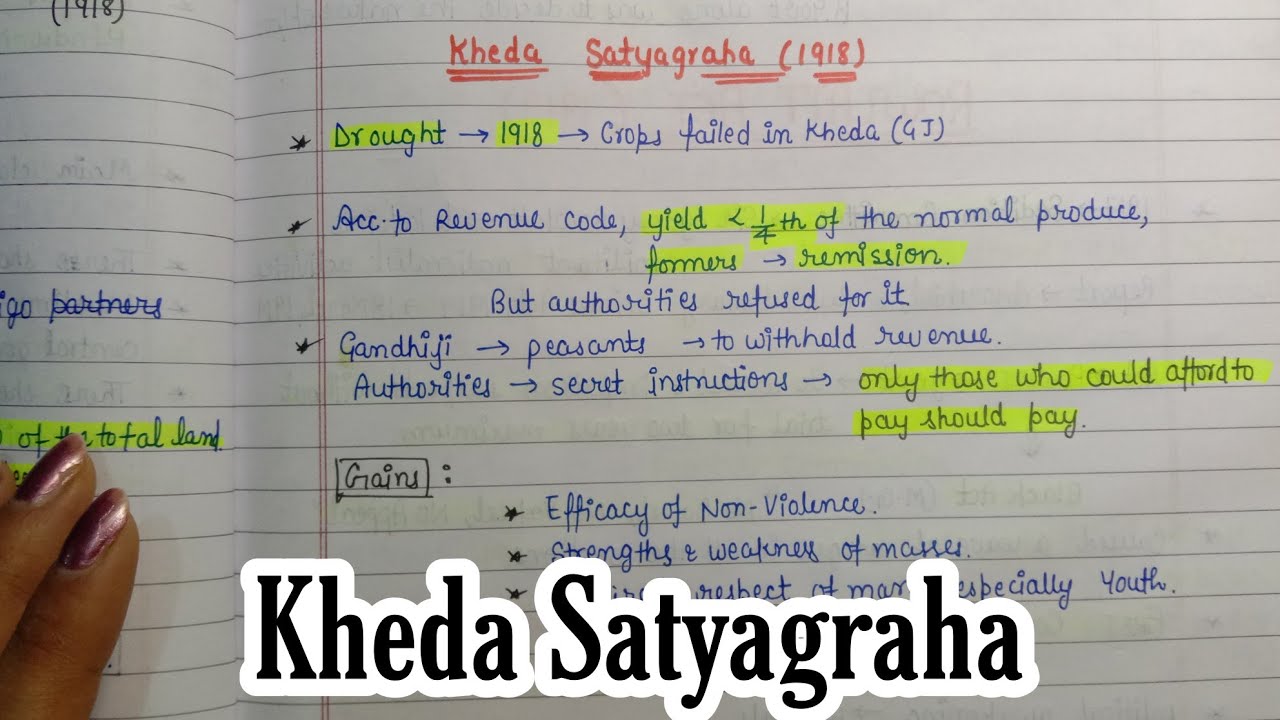 (1918)
igo partners
of the total land.
Kheda Satyagraha (1918)
* Drought → 1918 → Crops failed in Kheda (GJ)
* Acc. to Revenue code, yield < 1/4 th of the normal produce,
formers → remission.
But authorities refused for it
* Gandhiji → peasants → to withhold revenue.
Authorities → secret instructions → only those who could afford to
pay should pay.
Gains :
* Efficacy of Non-Violence.
* Strengths & weakness of masses.
* respect of especially Youth.
Kheda Satyagraha